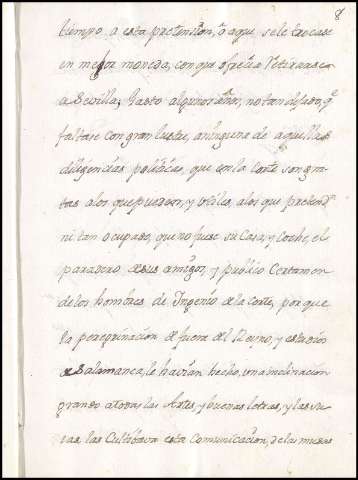 8
tiempo a esta pretension, o aque se le trocase
en mejor moneda, con que ofrecia retirarse
a Sevilla; Gasto algunos años, no tan difuso, q.
faltase con gran lustre, a ninguna de aquellas
diligencias politicas, que en la Corte son gra-
tas a los que pueden, y utiles, a los que pretend.n
ni tan ocupado, que no fuese su Casa, y Coche, el
paradero de sus amigos, y publico Certamen
de los hombres de Ingenio de la corte, por que
la peregrinacion de fuera del Reyno, y estudios
de Salamanca, le havian hecho, una inclinacion
grande a todas las Artes, y buenas letras, y las su-
yas las Cultibava esta Comunicacion, de las musas